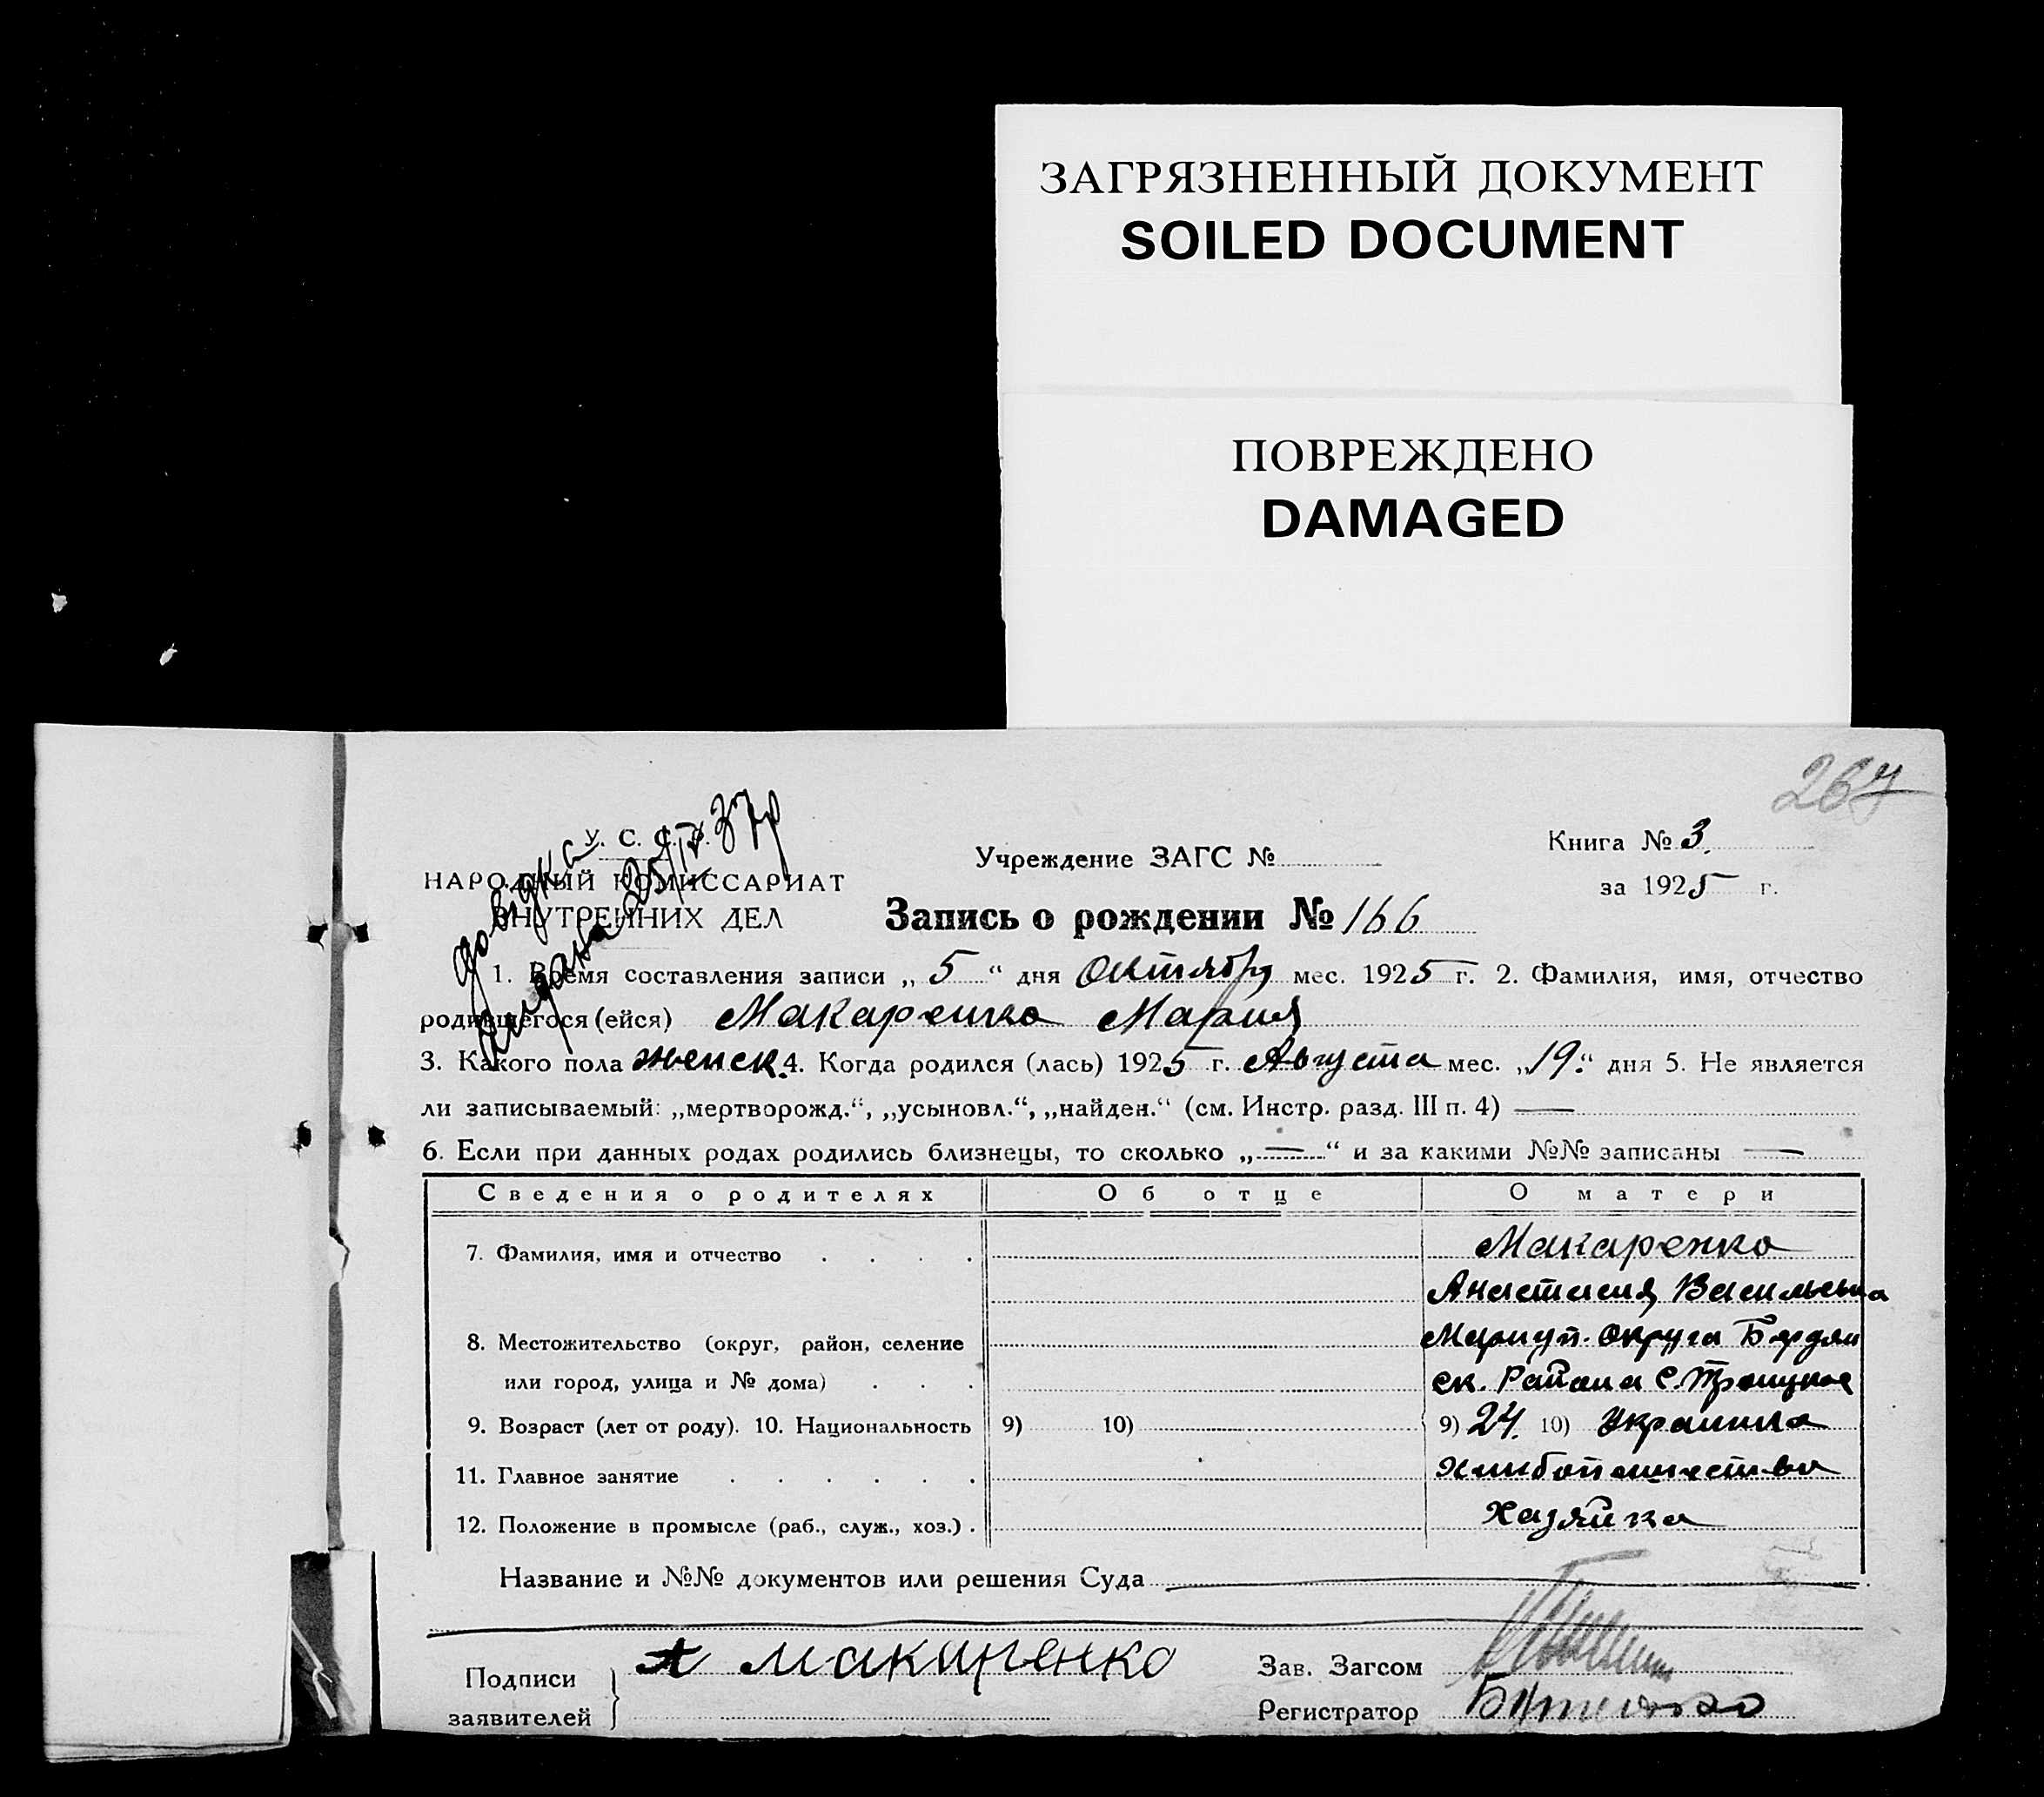 ЗАГРЯЗНЕННЫЙ ДОКУМЕНТ
SOILED DOCUMENT
ПОВРЕЖДЕНО
DAMAGED
267
У. С. С. Р.
НАРОДНЫЙ КОМИССАРИАТ
ВНУТРЕННИХ ДЕЛ
довідка
видана 25/IV 37р
Учреждение ЗАГС №
Книга № 3.
за 1925 г.
Запись о рождении № 166
1. Время составления записи „ 5 “ дня Октября мес. 1925 г. 2. Фамилия, имя, отчество
родившегося (ейся) Макаренко Мария
3. Какого пола женск. 4. Когда родился (лась) 1925 г. Августа мес. „19.“ дня 5. Не является
ли записываемый: „мертворожд.“, „усыновл.“, „найден.“ (см. Инстр. разд. III п. 4) —
6. Если при данных родах родились близнецы, то сколько „—“ и за какими №№ записаны —
Сведения о родителях Об отце О матери
7. Фамилия, имя и отчество . . . . Макаренко
Анастасия Васильевна
8. Местожительство (округ, район, селение Мариуп. округа Бердян
или город, улица и № дома) . . . ск. Района С. Троицкое
9. Возраст (лет от роду). 10. Национальность 9) 10) 9) 24. 10) Украинка
11. Главное занятие . . . . . . Хлибопашество
12. Положение в промысле (раб., служ., хоз.) . Хазяйка
Название и №№ документов или решения Суда
Подписи А Макаренко Зав. Загсом
заявителей Регистратор